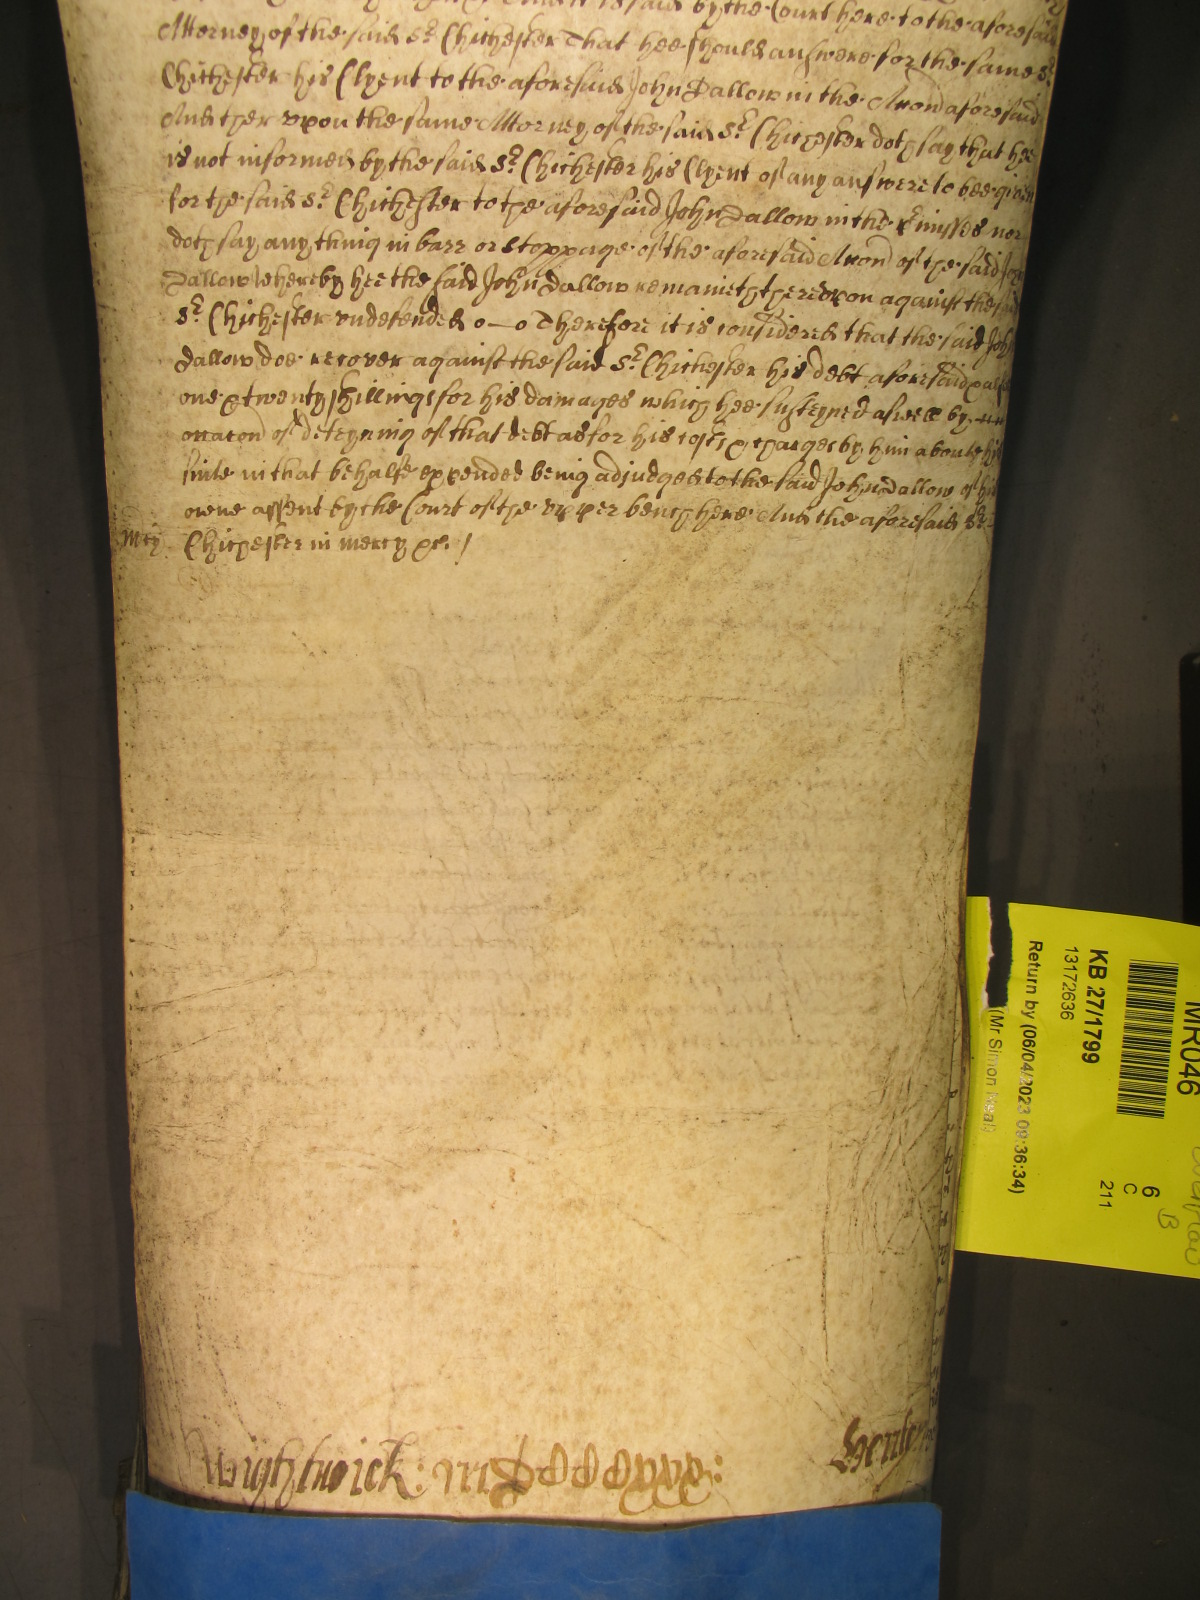 is said by the Court here to the aforesaid
Attorney of the said Sr. Chichester That hee should answere for the same Sr.
Chichester his Clyent to the aforesaid John Dallow in the Accon aforesaid
And ther upon the same Attorney of the said Sr. Chichester doth say that hee
is not informed by the said Sr. Chichester his Clyent of any answere to bee given
for the said Sr. Chichester to the aforesaid John Dallow in the nor
doth say any thinig in barr or stoppage of the aforesaid Accon of the said John
Dallow whereby hee the said John Dallow remaineth thereupon against the said
Sr. Chichester undefended o—o Therefore it is considered that the said John
Dallow doe recover against the said Sr. Chichester his debt aforesaid alsoe
one & twenty shillings for his damages which hee susteyned aswell by
occacon of deteyning of that debt as for his costs & charges by him aboute his
suite in that behalfe expended being adjudged to the said John Dallow of his
owne assent by the Court of the upper bench here And the aforesaid Sr.
Mcy. Chichester in mercy &c. /
Wightwick:
Henley
MR046
KB 27/1799
13172636
Return by (06/04/2023 09:36:34)
(Mr Simon Neal)
6
C
211
B